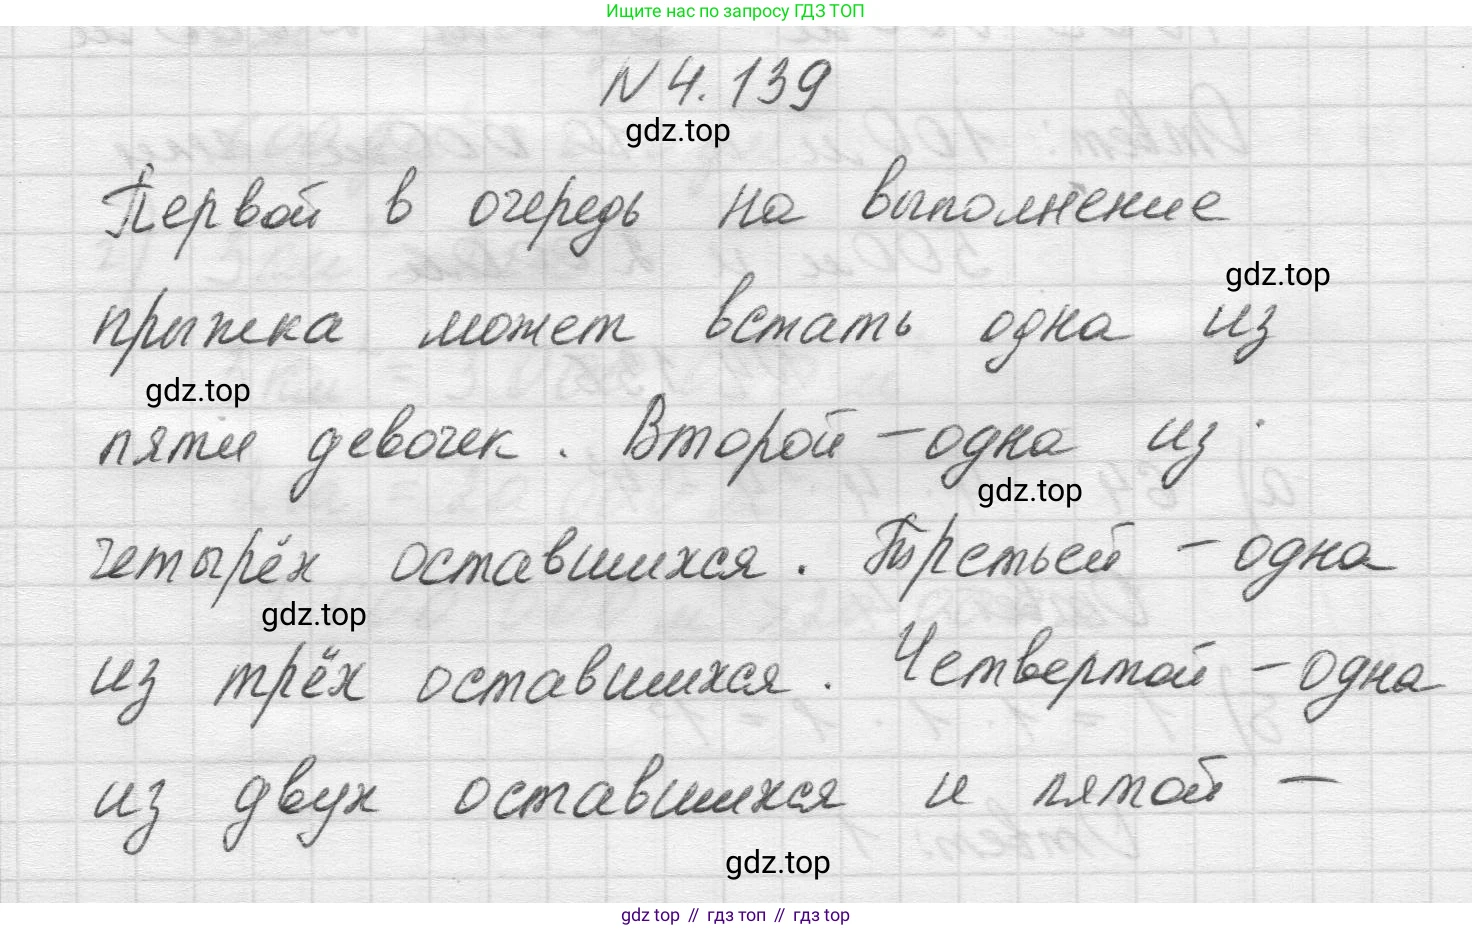 Ищите нас по запросу ГДЗ ТОП
N 4.139
gdz.top
Первой в очередь на выполнение
gdz.top
прыжка может встать одна из
gdz.top
пяти девочек. Второй – одна из
gdz.top
четырёх оставшихся. Третьей – одна
gdz.top
из трёх оставшихся. Четвертой – одна
из двух оставшихся и пятой –
gdz.top
gdz top // гдз топ // гдз top